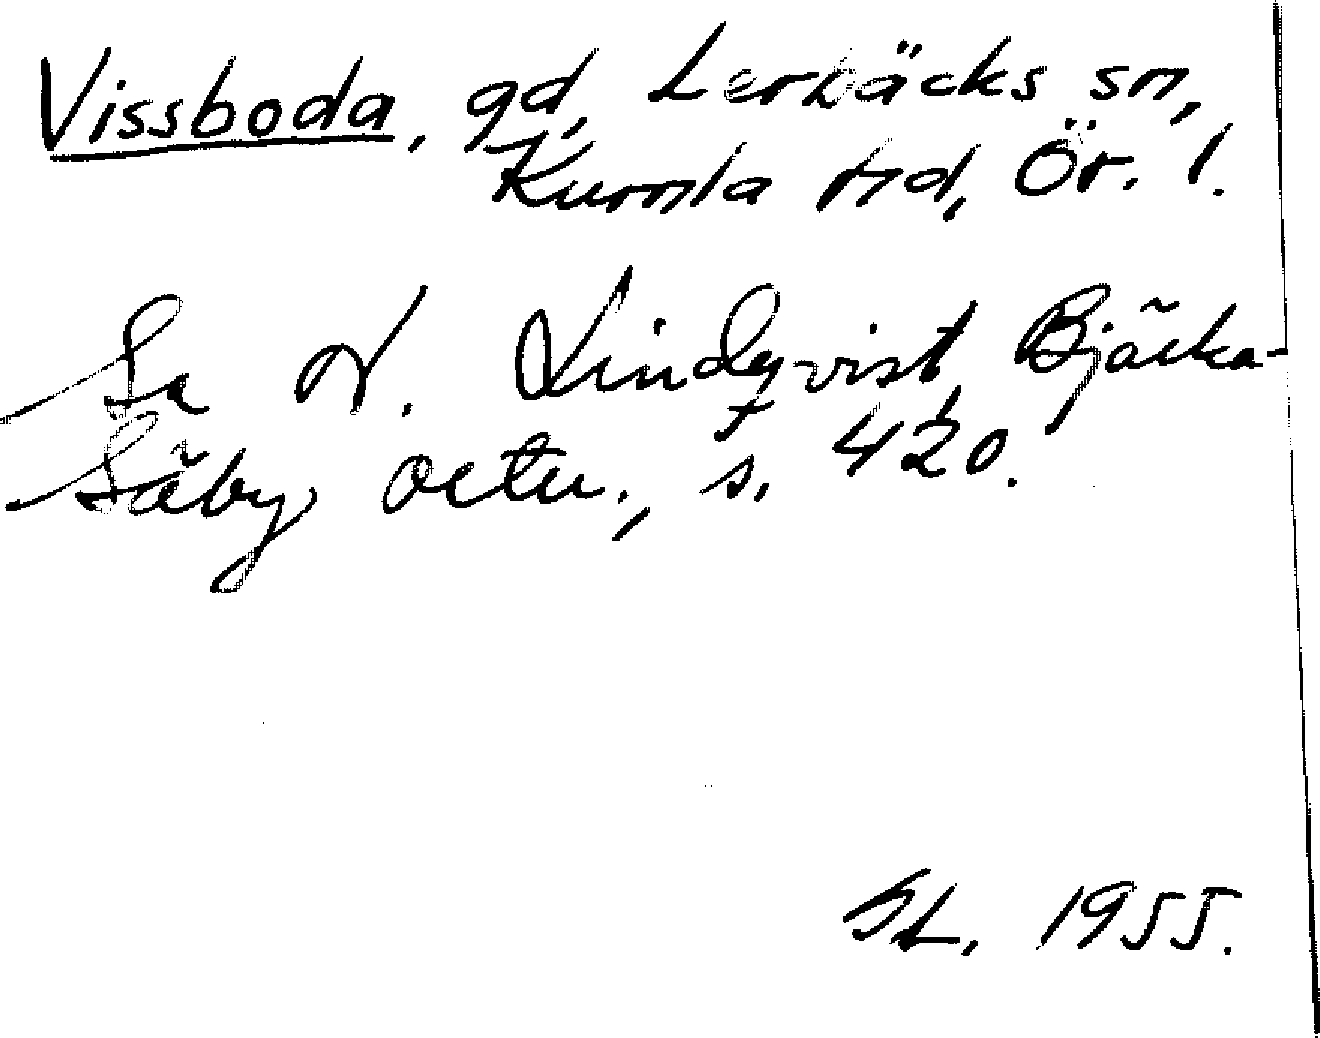 Vissboda, gd, Lerbäcks sn,
Kumla hd, Ör. l.
Se N. Lindqvist, Bjärka-
Säby ortn., s. 420.
SL. 1955.